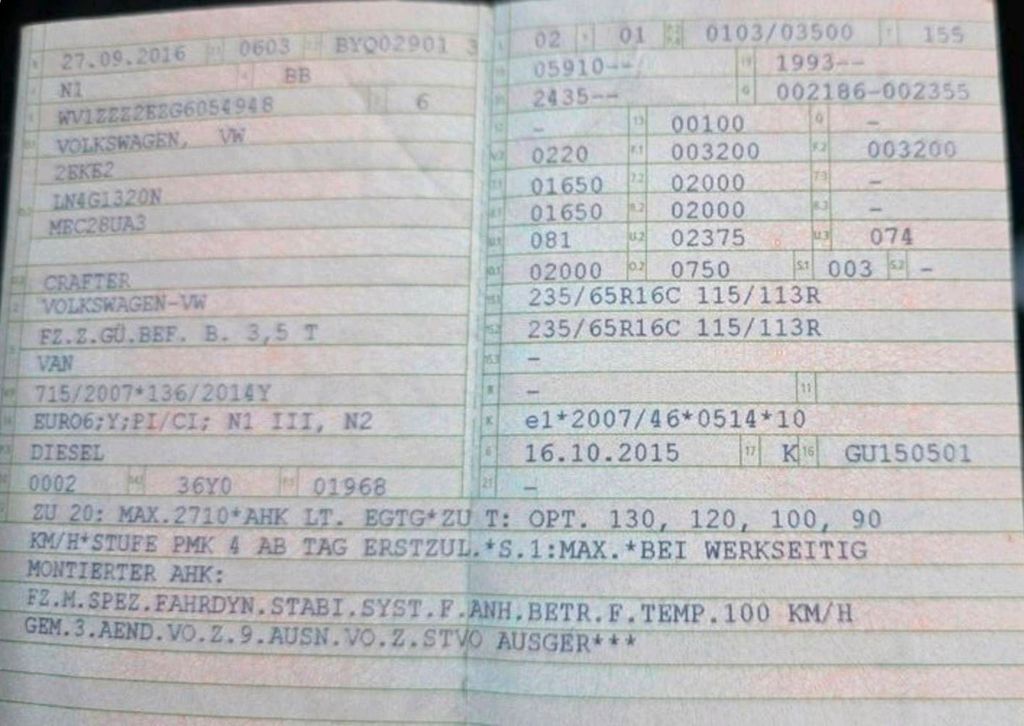 27.09.2016 0603 BYQ02901 3
N1 BB
WV1ZZZ2EZG6054948 6
VOLKSWAGEN, VW
2EKE2
LN4G1320N
MEC28UA3
CRAFTER
VOLKSWAGEN-VW
FZ.Z.GÜ.BEF. B. 3,5 T
VAN
715/2007*136/2014Y
EURO6;Y;PI/CI; N1 III, N2
DIESEL
0002 36Y0 01968
02 01 0103/03500 155
05910-- 1993--
2435-- 002186-002355
- 13 00100 Q -
0220 F.1 003200 F.2 003200
01650 7.2 02000 7.3 -
01650 8.2 02000 8.3 -
081 U.2 02375 U.3 074
02000 O.2 0750 S.1 003 S.2 -
235/65R16C 115/113R
235/65R16C 115/113R
15.3 -
R - 11
K e1*2007/46*0514*10
6 16.10.2015 17 K 16 GU150501
21 -
ZU 20: MAX.2710*AHK LT. EGTG*ZU T: OPT. 130, 120, 100, 90
KM/H*STUFE PMK 4 AB TAG ERSTZUL.*S.1:MAX.*BEI WERKSEITIG
MONTIERTER AHK:
FZ.M.SPEZ.FAHRDYN.STABI.SYST.F.ANH.BETR.F.TEMP.100 KM/H
GEM.3.AEND.VO.Z.9.AUSN.VO.Z.STVO AUSGER***